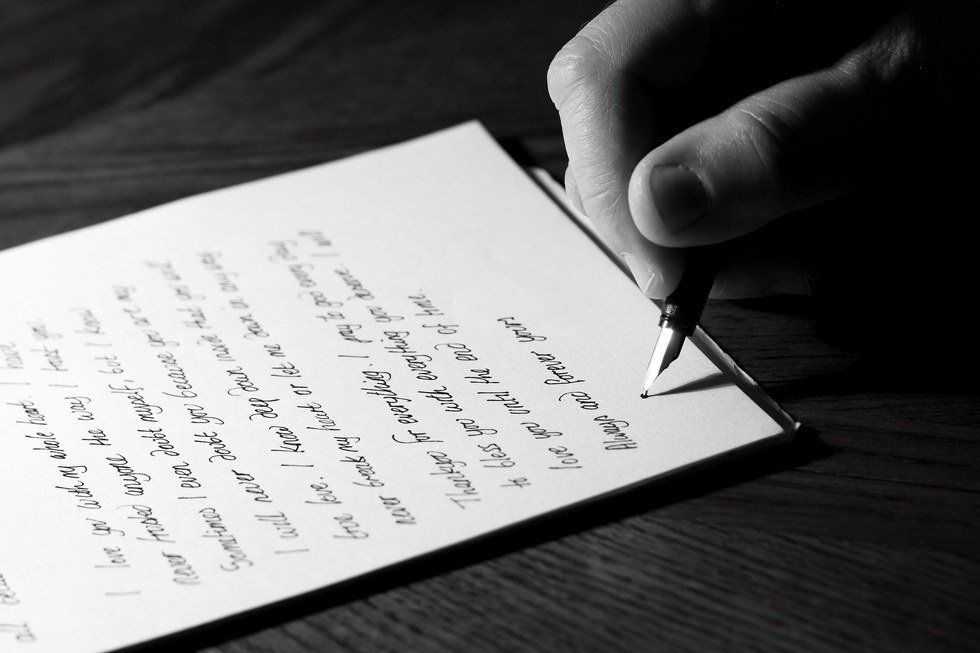 all
I love you with my whole heart. I have
never trusted anyone the way I trust you.
Sometimes I even doubt myself, but I know
I will never doubt you because you are my
true love. I know deep down inside that you will
never break my heart or let me down in any way.
Thankyou for everything. I pray to god every day
to bless you with everything you deserve. I will
love you until the end of time.
Always and forever yours